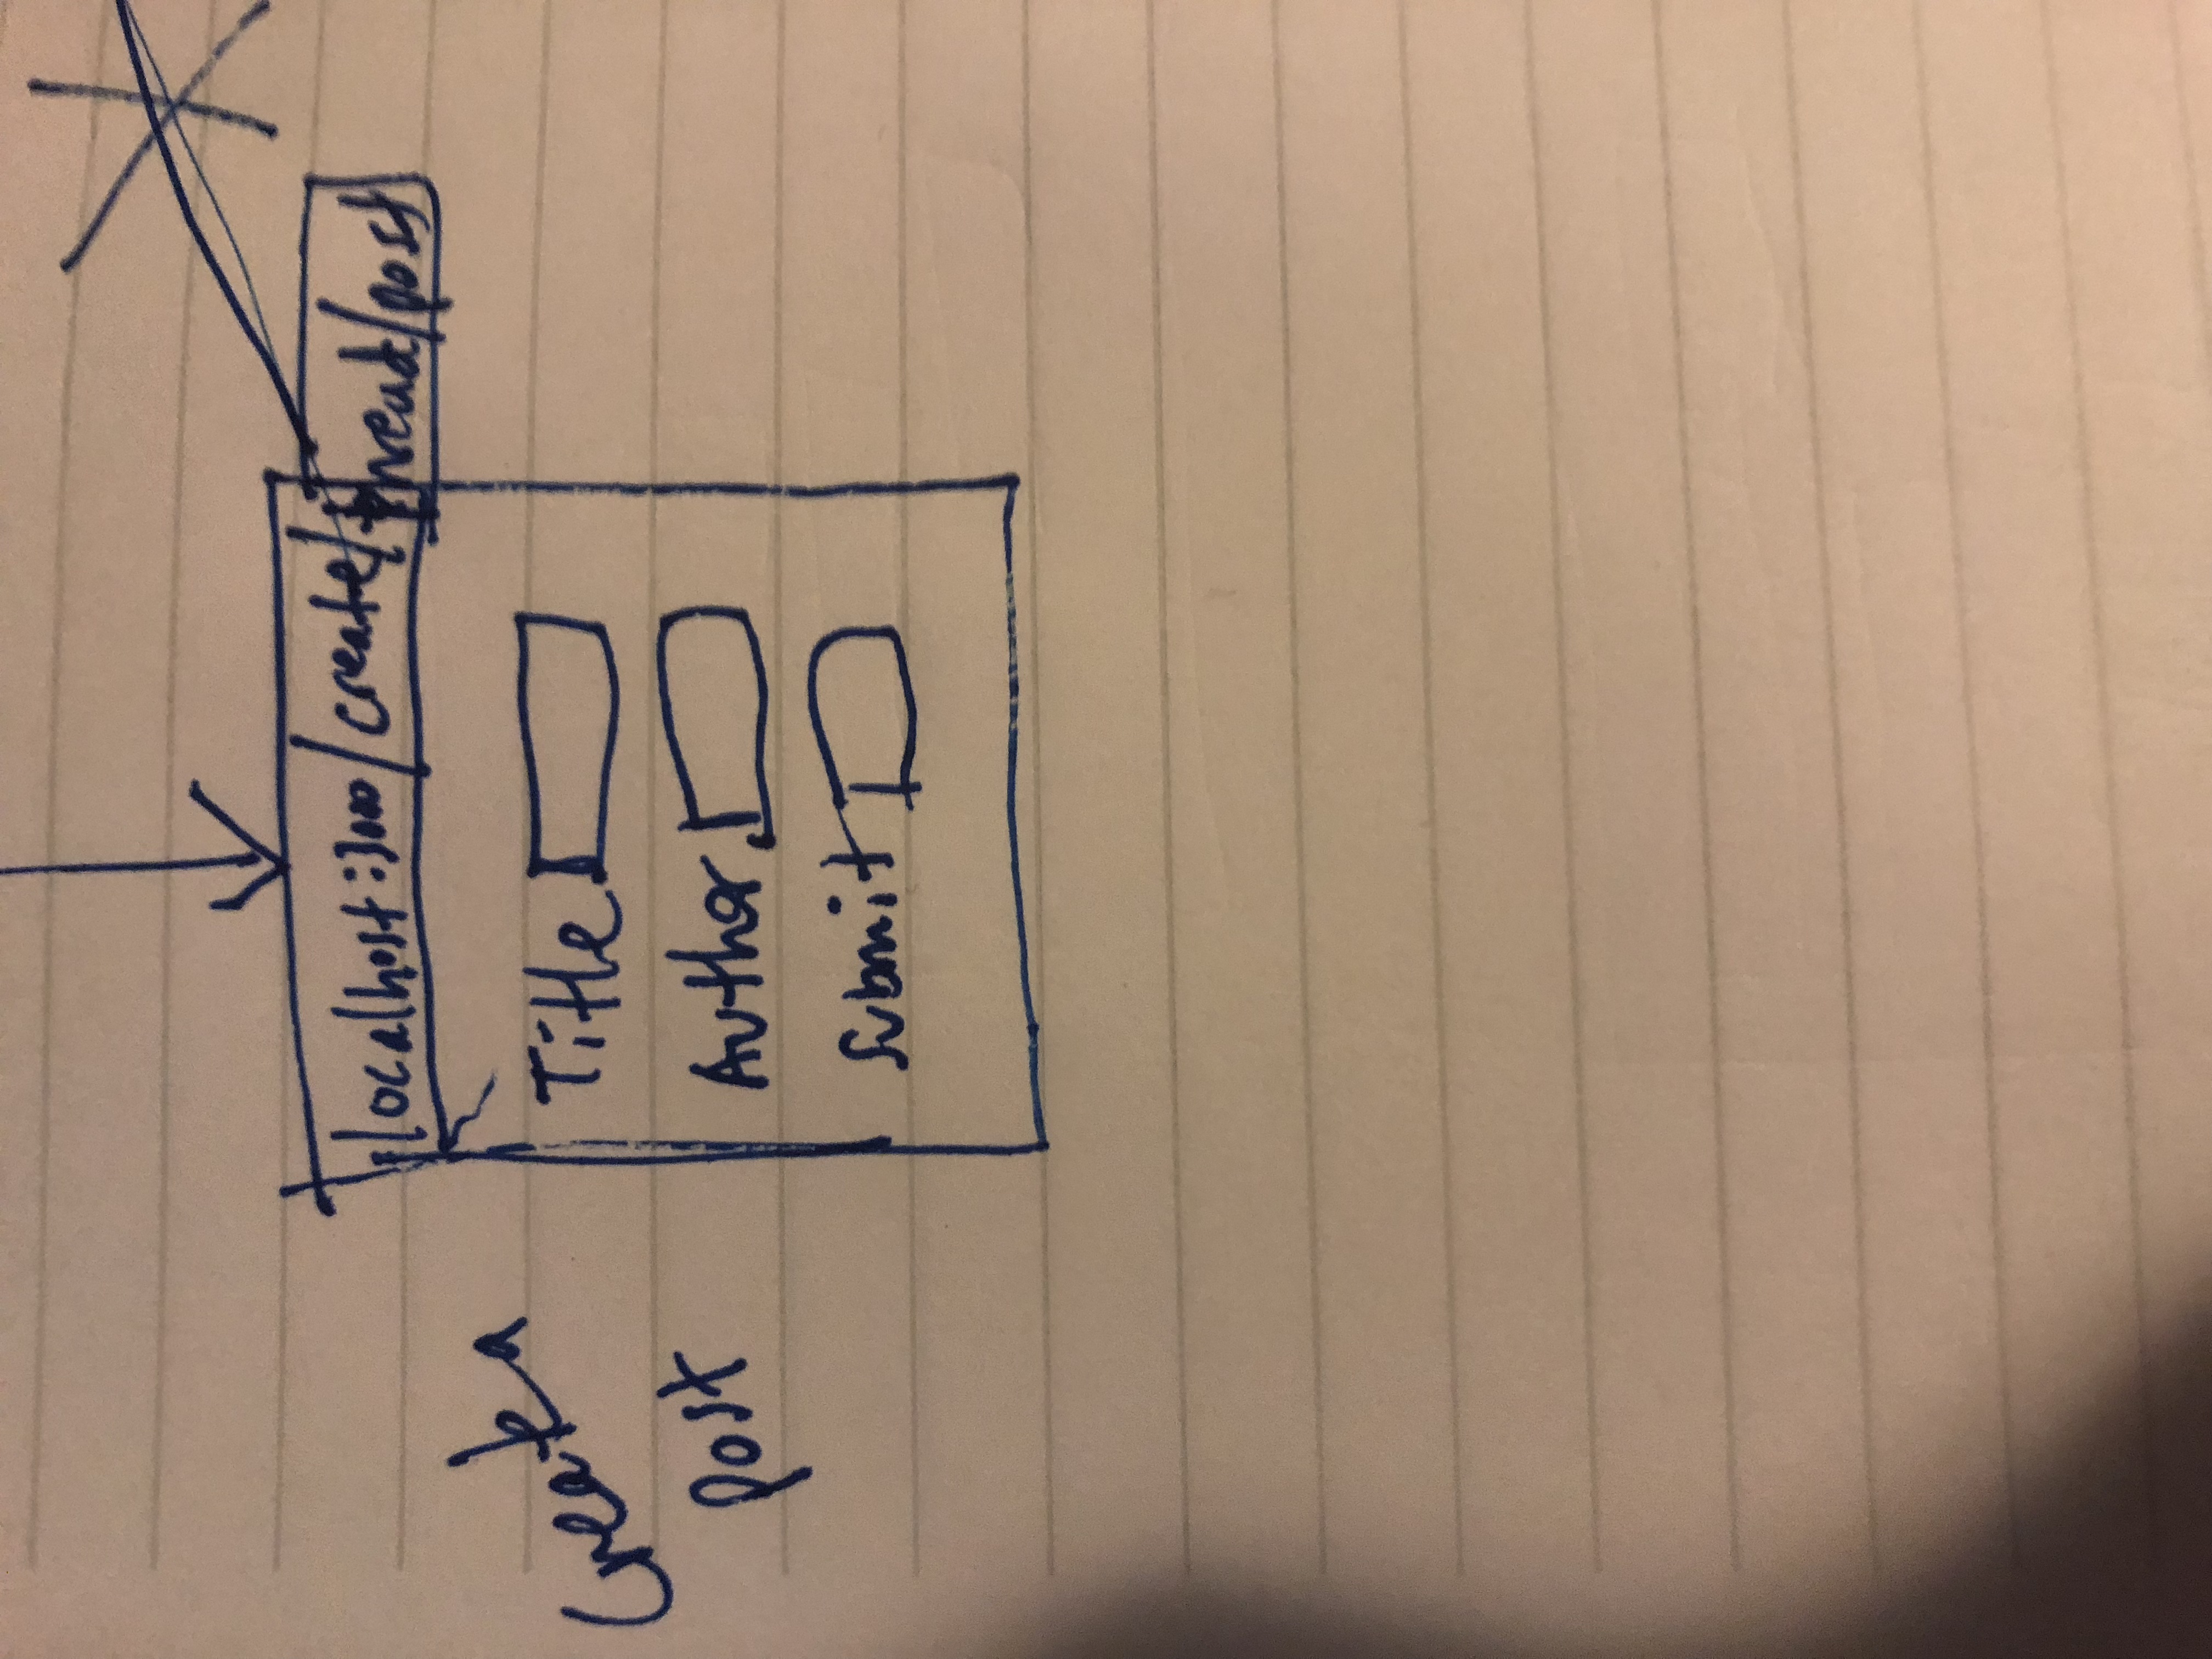 localhost:3000/create/thread/post
Create a
post
Title
Author
Submit